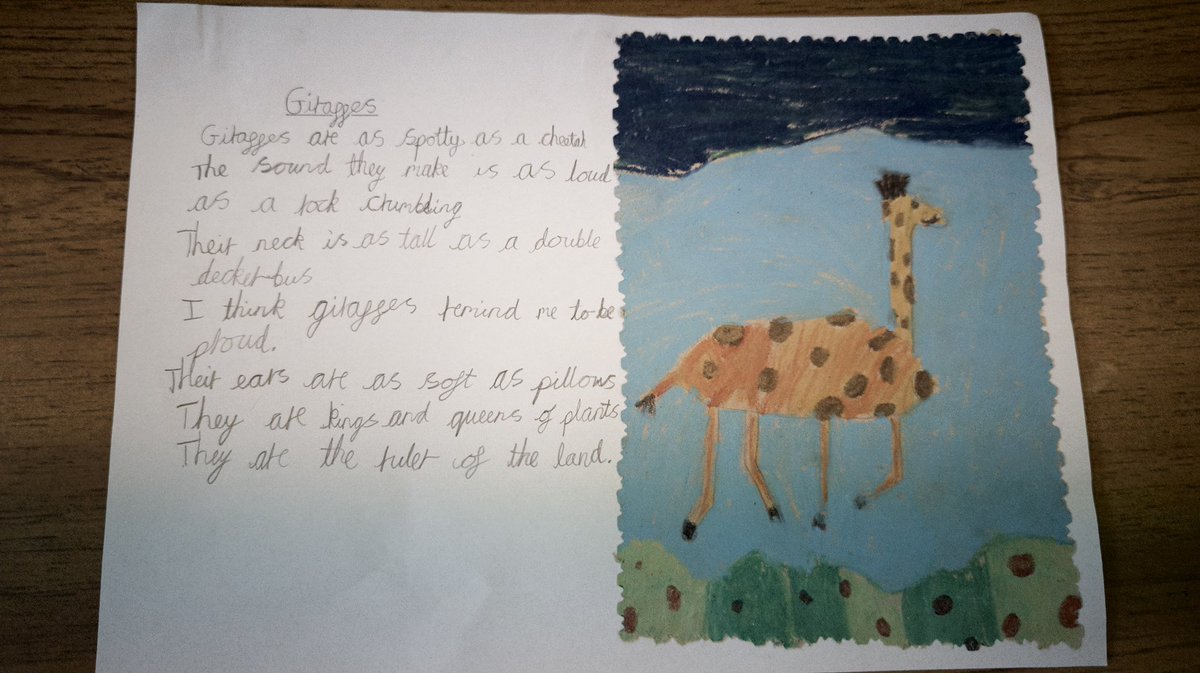 Giraffes
Giraffes are as spotty as a cheetah
The sound they make is as loud
as a rock crumbling
Their neck is as tall as a double
decker bus
I think giraffes remind me to be
proud.
Their ears are as soft as pillows
They are kings and queens of plants
They are the ruler of the land.